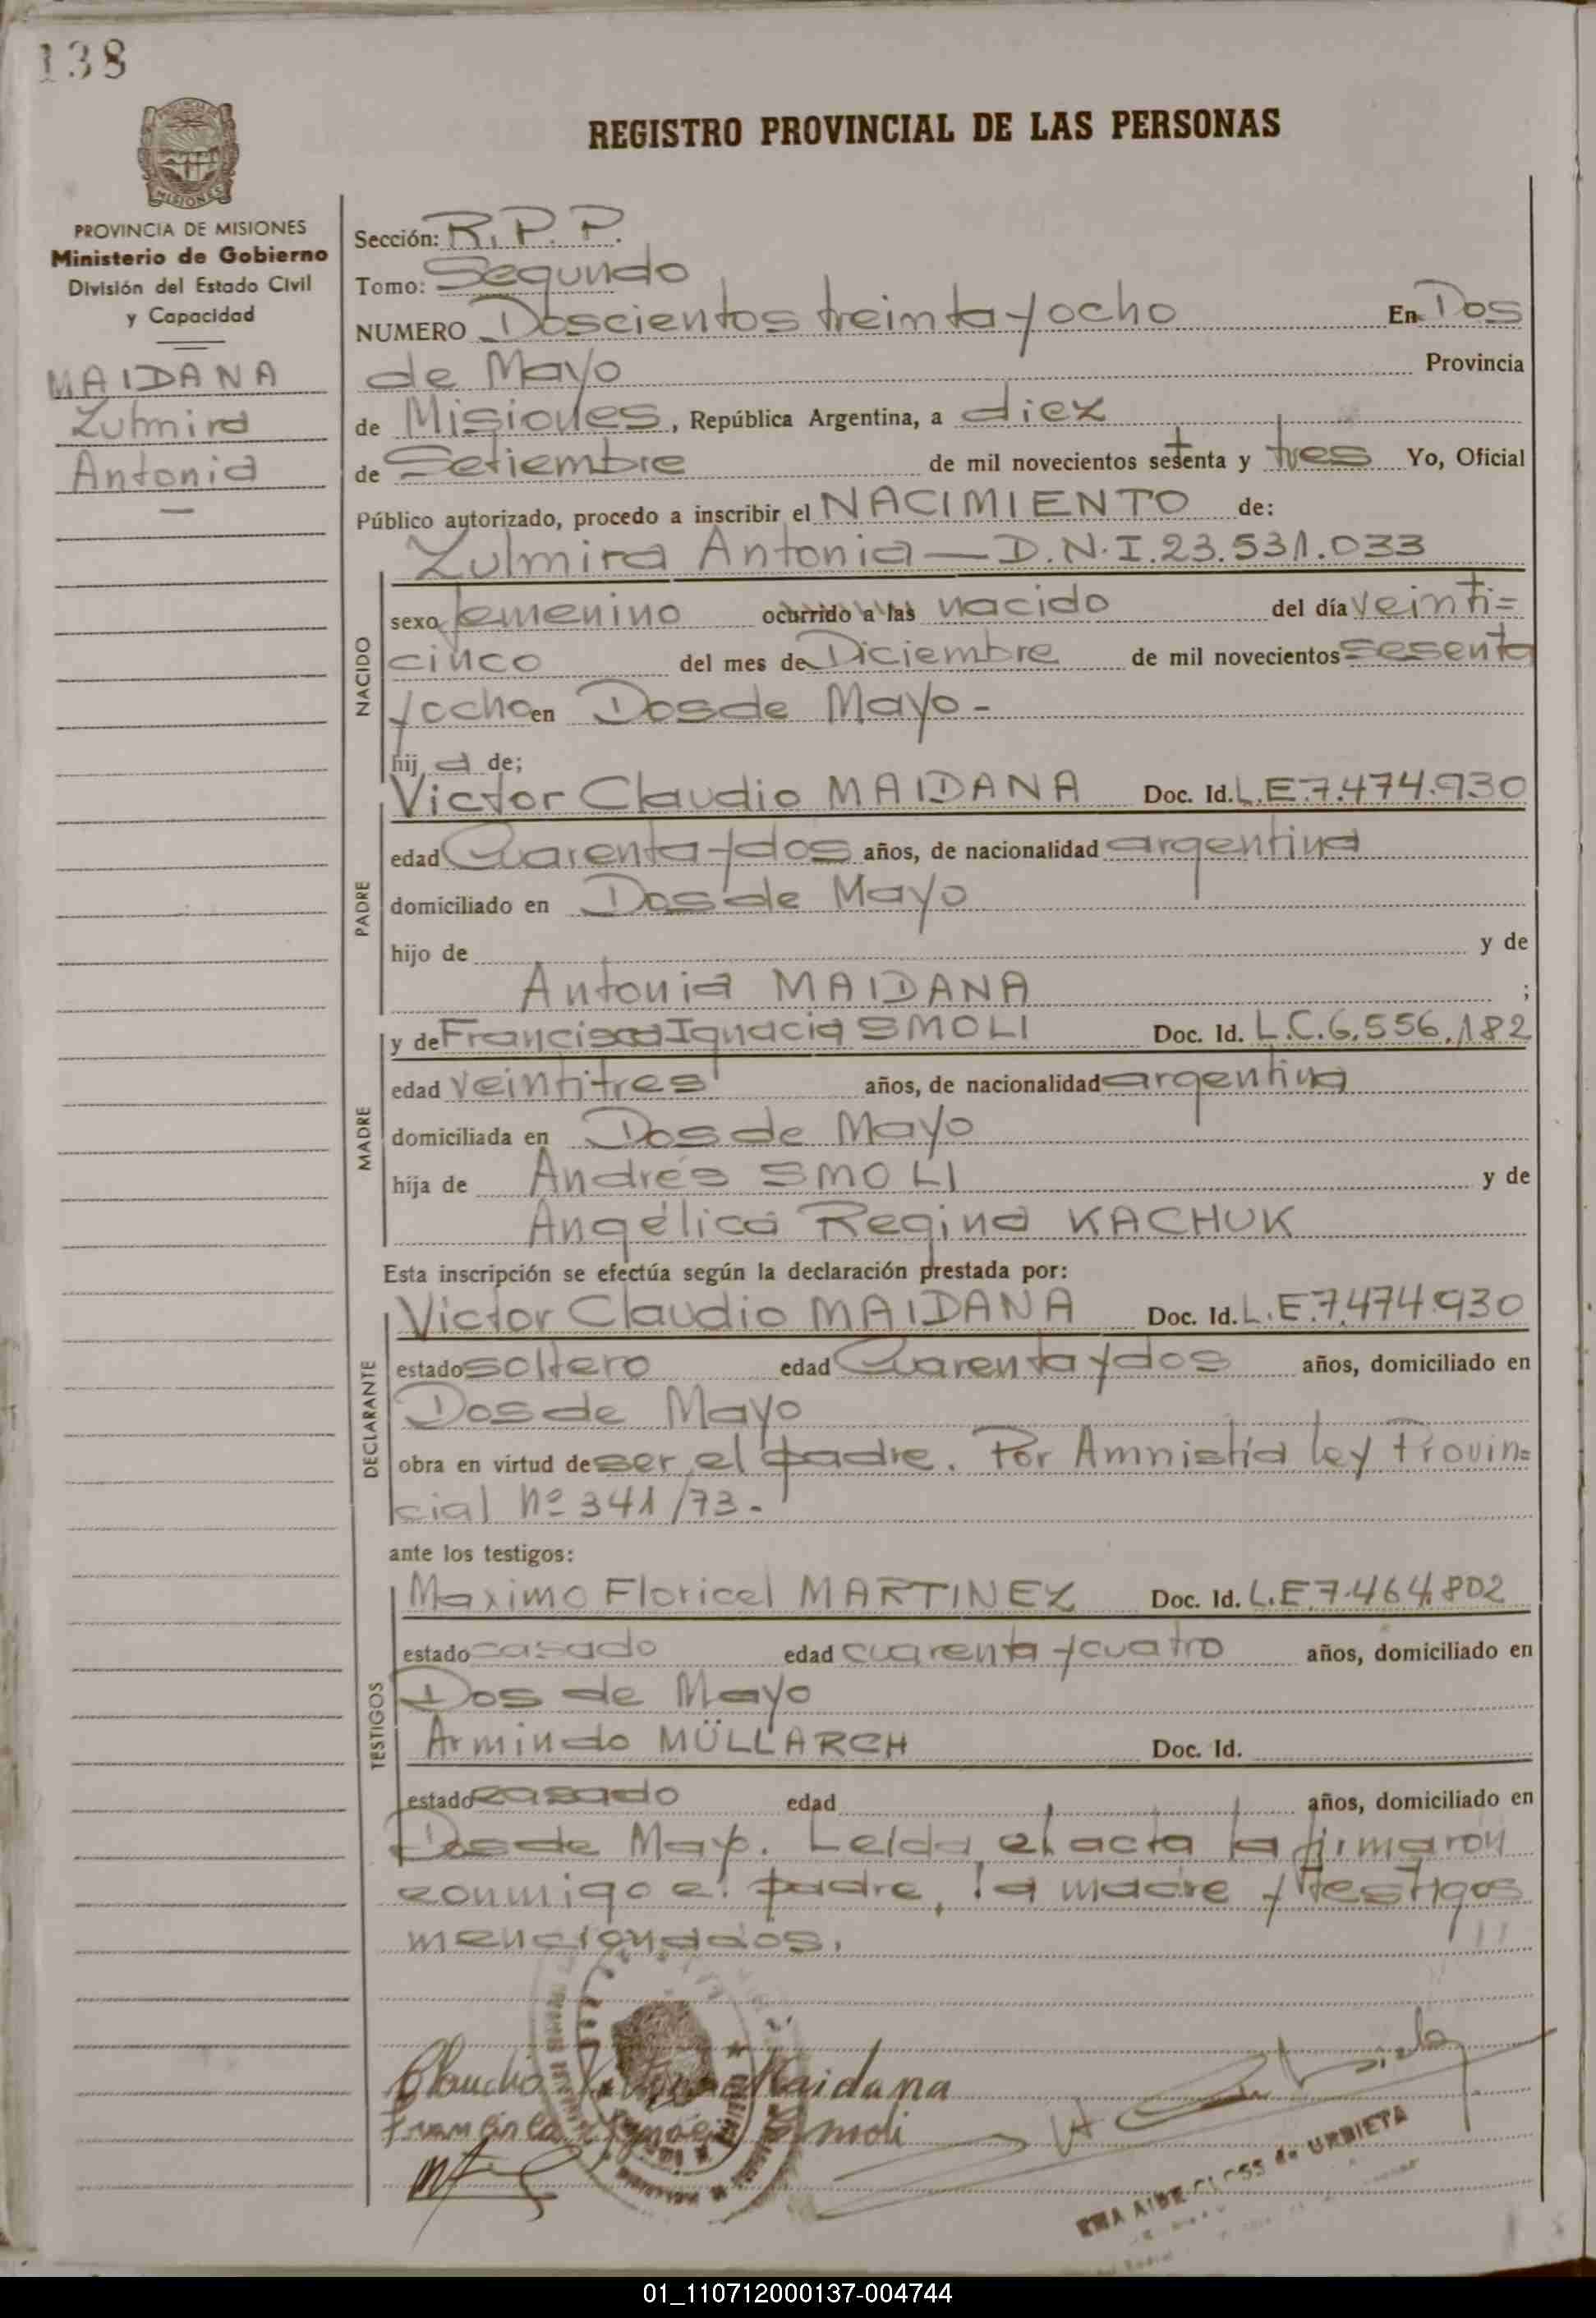 138
REGISTRO PROVINCIAL DE LAS PERSONAS
MISIONES
PROVINCIA DE MISIONES
Ministerio de Gobierno
División del Estado Civil
y Capacidad
MAIDANA
Zulmira
Antonia
Sección: R.P.P.
Tomo: Segundo
NUMERO Doscientos treinta y ocho En Dos
de Mayo Provincia
de Misiones, República Argentina, a diez
de Setiembre de mil novecientos setenta y tres Yo, Oficial
Público autorizado, procedo a inscribir el NACIMIENTO de:
Zulmira Antonia — D.N.I. 23.531.033
NACIDO
sexo femenino ocurrido a las nacido del día veinti=
cinco del mes de Diciembre de mil novecientos sesenta
y ocho en Dos de Mayo -
hij a de;
PADRE
Victor Claudio MAIDANA Doc. Id. L.E.7.474.930
edad Cuarenta y dos años, de nacionalidad argentina
domiciliado en Dos de Mayo
hijo de y de
Antonia MAIDANA ;
MADRE
y de Francisca Ignacia SMOLI Doc. Id. L.C.6.556.182
edad veintitres años, de nacionalidad argentina
domiciliada en Dos de Mayo
hija de Andrés SMOLI y de
Angélica Regina KACHUK
Esta inscripción se efectúa según la declaración prestada por:
DECLARANTE
Victor Claudio MAIDANA Doc. Id. L.E.7.474.930
estado soltero edad Cuarenta y dos años, domiciliado en
Dos de Mayo
obra en virtud de ser el padre. Por Amnistía ley Provin=
cial Nº 341/73.-
ante los testigos:
TESTIGOS
Maximo Floricel MARTINEZ Doc. Id. L.E.7.464.802
estado casado edad cuarenta y cuatro años, domiciliado en
Dos de Mayo
Armindo MÜLLARCH Doc. Id.
estado casado edad años, domiciliado en
Dos de Mayo. Leída el acta la firmaron
conmigo el padre, la madre y testigos
mencionados.
Claudio Maidana
Francisca Smoli
de URBIETA
01_110712000137-004744